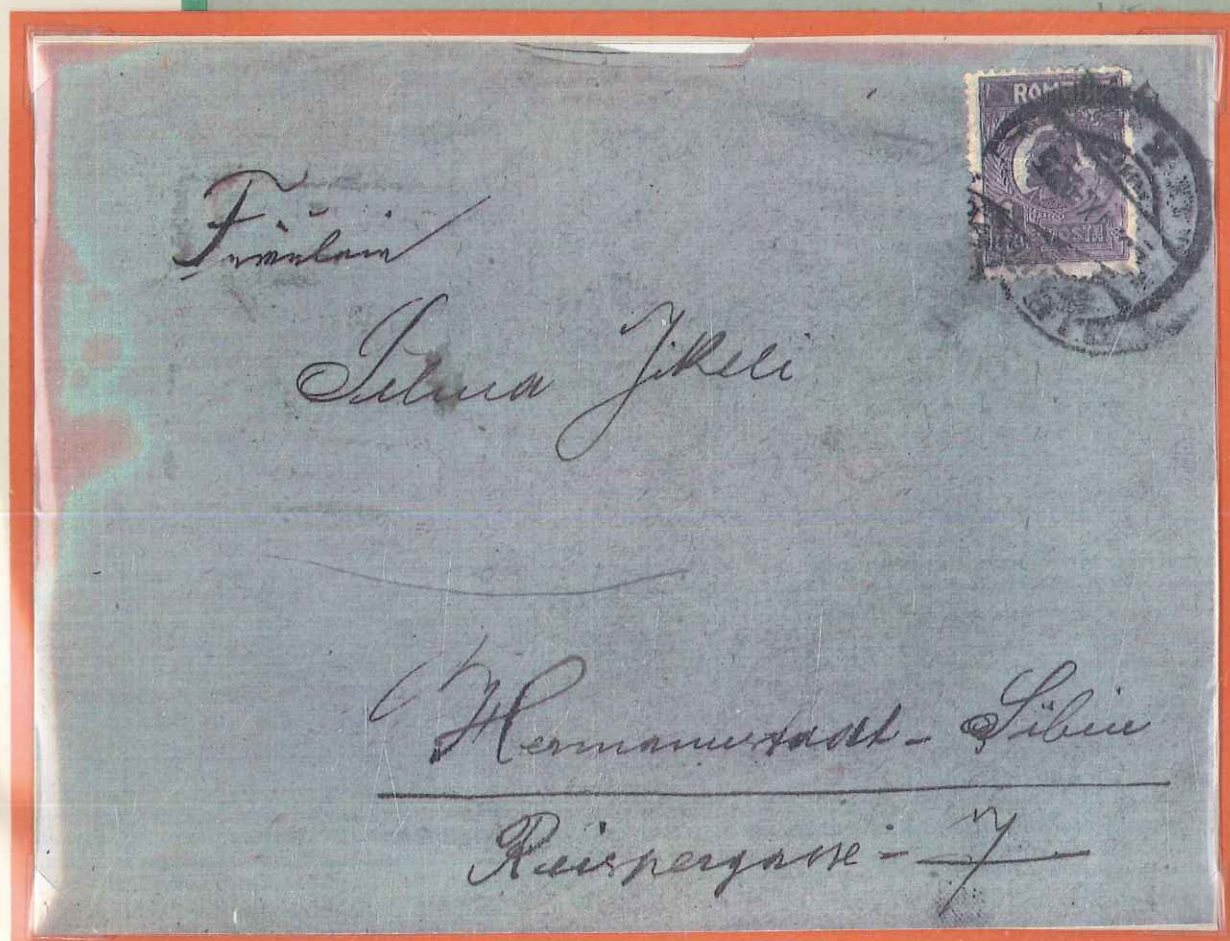 ROMÂNIA
Fräulein
Selma Jikeli
Hermannstadt - Sibiu
Reispergasse - 7